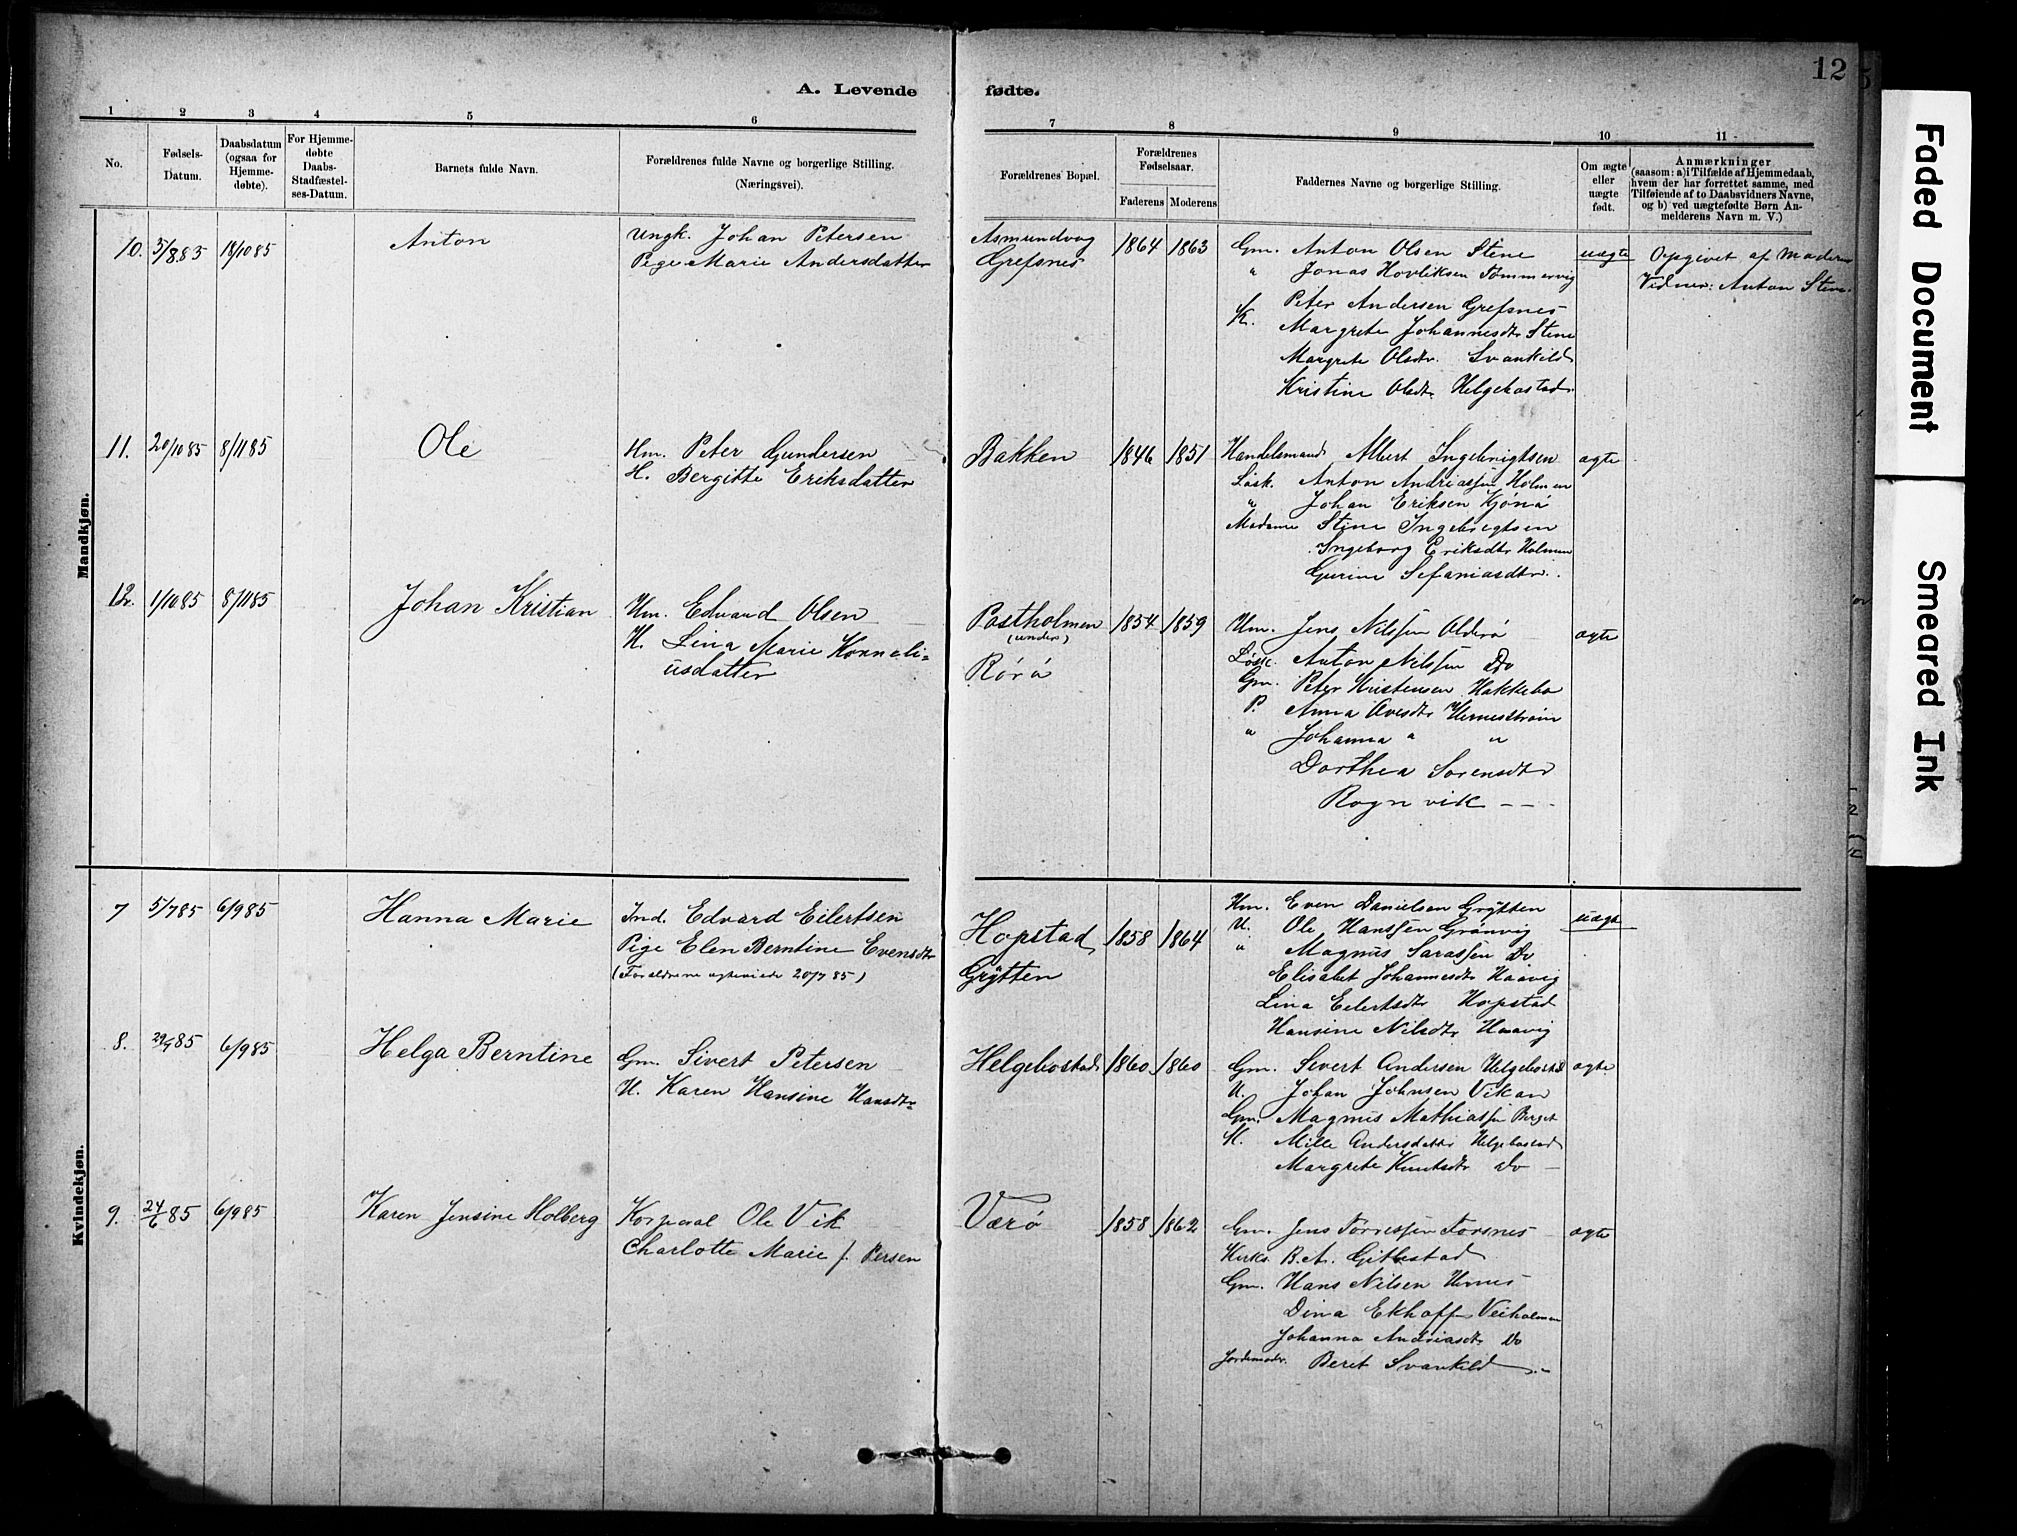 A. Levende fødte.
12
1 2 3 4 5 6 7 8 9 10 11
No.
Fødsels-
Datum.
Daabsdatum
(ogsaa for
Hjemme-
døbte).
For Hjemme-
døbte
Daabs-
Stadfæstel-
ses-Datum.
Barnets fulde Navn.
Forældrenes fulde Navne og borgerlige Stilling.
(Næringsvei).
Forældrenes Bopæl.
Forældrenes
Fødselsaar.
Faderens Moderens
Faddernes Navne og borgerlige Stilling.
Om ægte
eller
uægte
født.
Anmærkninger
(saasom: a) i Tilfælde af Hjemmedaab,
hvem der har forrettet samme, med
Tilføiende af to Daabsvidners Navne,
og b) ved uægtefødte Børn An-
melderens Navn m. V.)
Mandkjøn.
10. 5/8 85 18/10 85 Anton
Ungk. Johan Petersen
Pige Marie Andersdatter
Asmundvag
Grefsnes
1864 1863
Gm. Anton Olsen Stene
" Jonas Hovliksen Tømmervig
Peter Andersen Grefsnes
K. Margrete Johannesdtr Stene
Margrete Olsdtr. Svankild
Kristine Olsdtr Helgebostad
uægte
Opgivet af Moderen
Vidner: Anton Stene
11. 20/10 85 8/11 85 Ole
Hm. Peter Gundersen
H. Bergitte Eriksdatter
Bakken 1846 1851
Handelsmand Albert Ingebrigtsen
Løsk. Anton Andriassen Holmen
" Johan Eriksen Kjønø
Madame Stine Ingebrigtsen
Ingeborg Eriksdtr Holmen
Gurine Sefaniasdtr.
ægte
12. 1/10 85 8/11 85 Johan Kristian
Hm. Edvard Olsen
H. Lina Marie Korneli=
usdatter
Postholmen
(under)
Rørø
1854 1859
Hm. Jens Nilssen Olderø
Løsk. Anton Nilssen Do
Gm. Peter Kristensen Hakkebo
P. Anna Ovesdtr Hernesstrøm
" Johanna " "
Dorthea Sorensdtr
Rognvik - - -
ægte
Kvindekjøn.
7 5/7 85 6/9 85 Hanna Marie
Ind. Edvard Eilertsen
Pige Elen Berntine Evensdtr
(Forældrene ægteviede 20/7 85)
Hopstad
Grÿtten
1858 1864
Hm. Even Danielsen Grÿtten
U. Ole Hanssen Grønvig
" Magnus Sarassen Do
Elisabet Johannesdtr Haavig
Lina Eilertsdtr Hopstad
Hansine Nilsdtr Haavig
uægte
8. 85 6/9 85 Helga Berntine
Gm. Sivert Petersen
H. Karen Hansine Hansdtr
Helgebostad 1860 1860
Gm. Sivert Andersen Helgebostad
U. Johan Johnsen Vikan
Gm. Magnus Mathiassen Berget
K. Mille Andersdatter Helgebostad
Margrete Knutsdtr Do
ægte
9. 24/6 85 6/9 85 Karen Jensine Holberg
Korporal Ole Vik
Charlotte Marie f. Persen
Værø 1858 1862
Gm. Jens Torressen Forsnes
Kirks. B. A. Gittestad
Gm. Hans Nilsen Hernes
Dina Ekhoff Veiholmen
Johanna Andriasdtr Do
Jordemodr. Beret Svankild
ægte
Faded Document
Smeared Ink